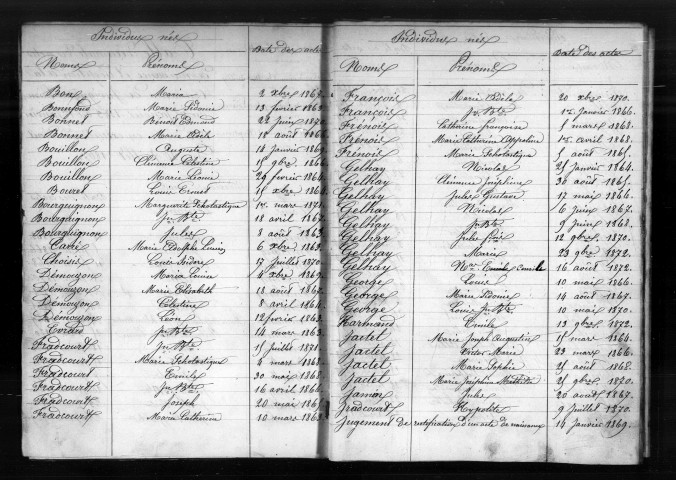 Individus nés
Date des actes
Noms
Prénoms
Bon Maria 2 xbre 1863
Bonnefond Marie Sidonie 13 février 1863
Bonnet Benoit Edmond 22 juin 187
Bonnet Marie Adèle 18 août 186
Bouillon Auguste 18 janvier 186
Bouillon Clémence Célestine 15 9bre 186
Bouillon Marie Léonie 29 février 186
Bouret Louis Ernest 15 xbre 186
Bourguignon Marguerite Scholastique 1er mars 187
Bourguignon Jn Bte 18 avril 186
Bourguignon Jules 8 août 1863
Carré Marie 6 xbre 1863
Choisis Louis Isidore 17 juillet 1870
Démouzon Maria Louise 4 xbre 186
Démouzon Marie Elisabeth 18 août 186
Démouzon Célestine 8 avril 186
Démouzon Léon 12 février 1863
Jn Bte 14 mars 1863
Fradcourt Jn Bte 15 juillet 187
Fradcourt Marie Scholastique 8 mars 186
Fradcourt Emile 30 mai 186
Fradcourt Jn Bte 16 avril 186
Fradcourt Joseph 20 mai 186
Fradcourt Marie Catherine 10 mars 186
Individus nés
Date des actes
Noms
Prénoms
François Marie Adèle 20 xbre 1870.
François Jn Bte 1er janvier 1866.
Frénois Catherine françoise 5 mars 1868.
Frénois Marie Catherine Appoline 1er avril 1868.
Frénois Marie Scholastique 5 août 1865.
Gelhay Nicolas 25 janvier 1864.
Gelhay Clémence Joséphine 30 août 1865.
Gelhay Jules Gustave 17 mai 1866.
Gelhay Nicolas 6 juin 1867.
Gelhay Jn Bte 5 juin 1868.
Gelhay Jules 12 9bre 1870.
Gelhay Maria 23 9bre 1872.
Gelhay Emile Camille 16 août 1872.
George Louis 10 mai 1866.
George Marie Sidonie 14 août 1867.
George Louis Jn Bte 10 mai 1870.
Harmand Emile 13 9bre 1872.
Jactel Marie Joseph Augustin 15 mars 1864.
Jactel Victor Marie 23 mars 1866.
Jactel Marie Sophie 25 août 1868.
Jactel Marie Joséphine Mathilde 25 9bre 1870.
Jamin Jules 20 août 1867.
Jradcourt Hypolite 9 juillet 1870.
Jugement de rectification d'un acte de naissance 14 janvier 1869.